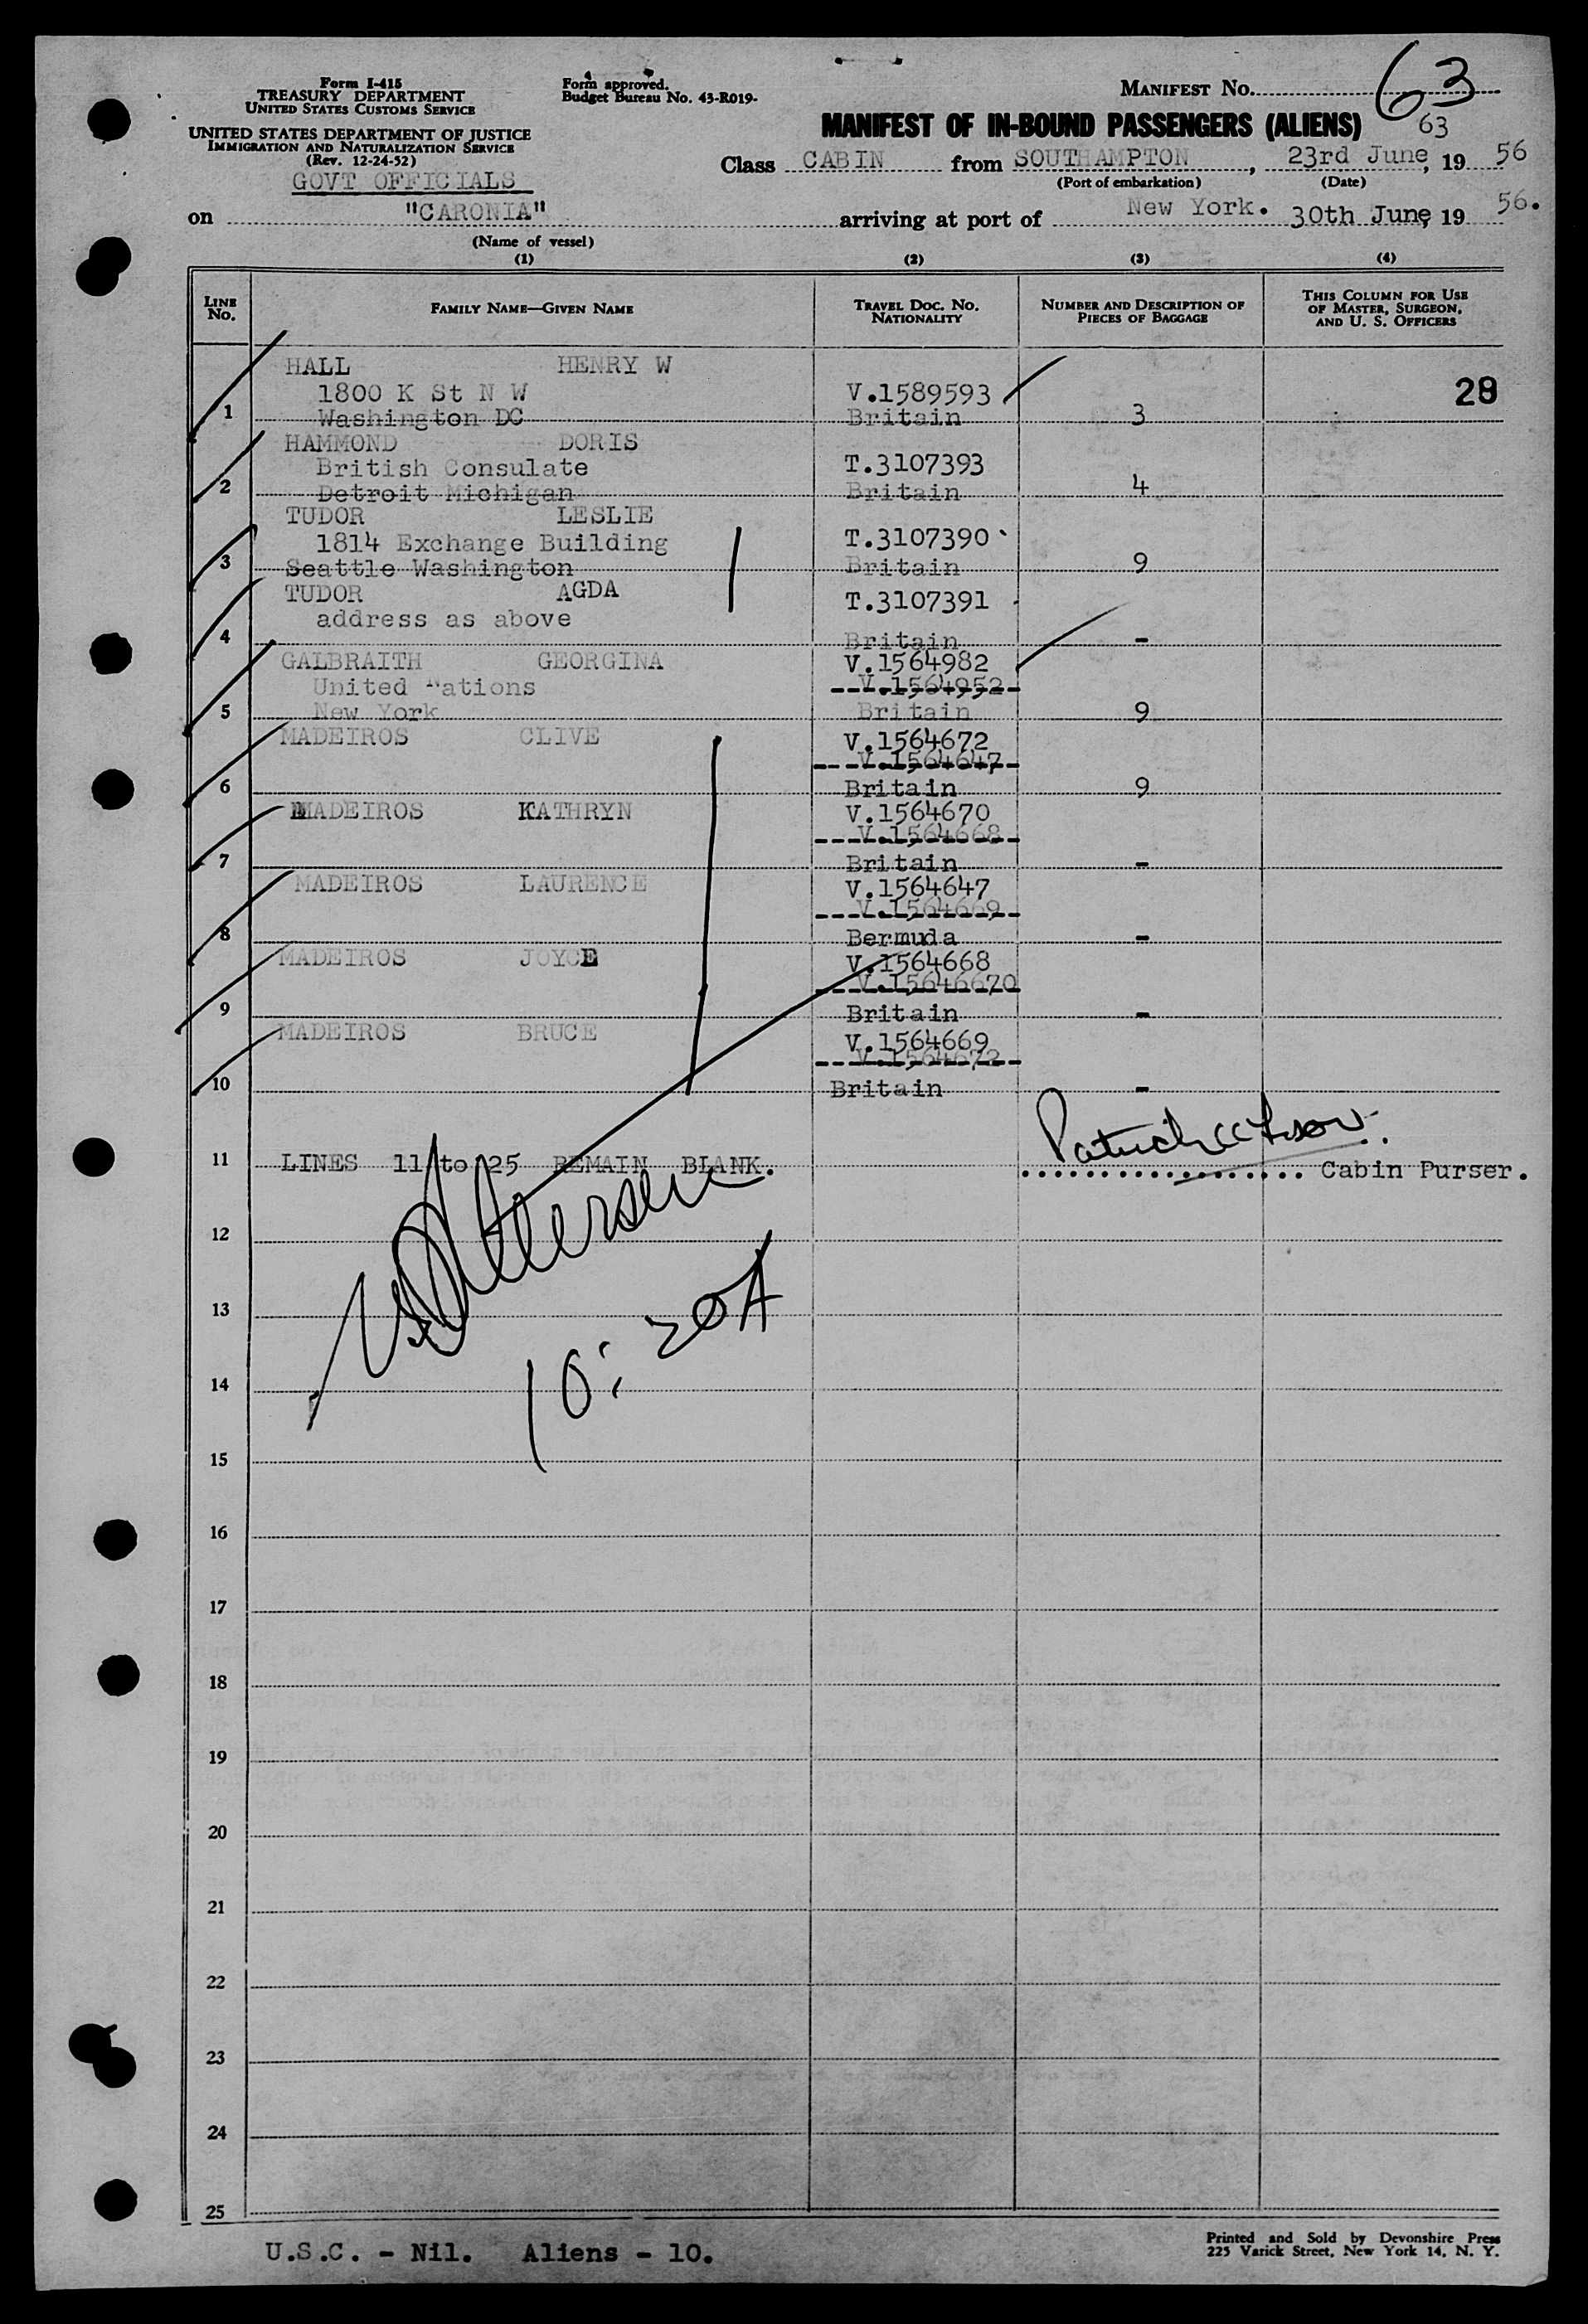 Form I-415
TREASURY DEPARTMENT
UNITED STATES CUSTOMS SERVICE
UNITED STATES DEPARTMENT OF JUSTICE
IMMIGRATION AND NATURALIZATION SERVICE
(Rev. 12-24-52)
GOVT OFFICIALS
Form approved.
Budget Bureau No. 43-R019-
MANIFEST No. 63
MANIFEST OF IN-BOUND PASSENGERS (ALIENS) 63
Class CABIN from SOUTHAMPTON, 23rd June, 19 56
(Port of embarkation) (Date)
on "CARONIA" arriving at port of New York. 30th June, 19 56.
(Name of vessel)
(1) (2) (3) (4)
LINE No. FAMILY NAME—GIVEN NAME TRAVEL DOC. No. NATIONALITY NUMBER AND DESCRIPTION OF PIECES OF BAGGAGE THIS COLUMN FOR USE OF MASTER, SURGEON, AND U. S. OFFICERS
HALL HENRY W
1800 K St N W V.1589593 28
1 Washington DC Britain 3
HAMMOND DORIS
British Consulate T.3107393
2 Detroit Michigan Britain 4
TUDOR LESLIE
1814 Exchange Building T.3107390
3 Seattle Washington Britain 9
TUDOR AGDA T.3107391
address as above
4 Britain -
GALBRAITH GEORGINA V.1564982
United Nations V.1564952
5 New York Britain 9
MADEIROS CLIVE V.1564672
V.1564647
6 Britain 9
MADEIROS KATHRYN V.1564670
V.1564668
7 Britain -
MADEIROS LAURENCE V.1564647
V.1564669
8 Bermuda -
MADEIROS JOYCE V.1564668
V.15646670
9 Britain -
MADEIROS BRUCE V.1564669
V.1564672
10 Britain -
11 LINES 11 to 25 REMAIN BLANK. Cabin Purser.
12
13
10:20A
14
15
16
17
18
19
20
21
22
23
24
25
U.S.C. - Nil. Aliens - 10.
Printed and Sold by Devonshire Press
225 Varick Street, New York 14, N. Y.